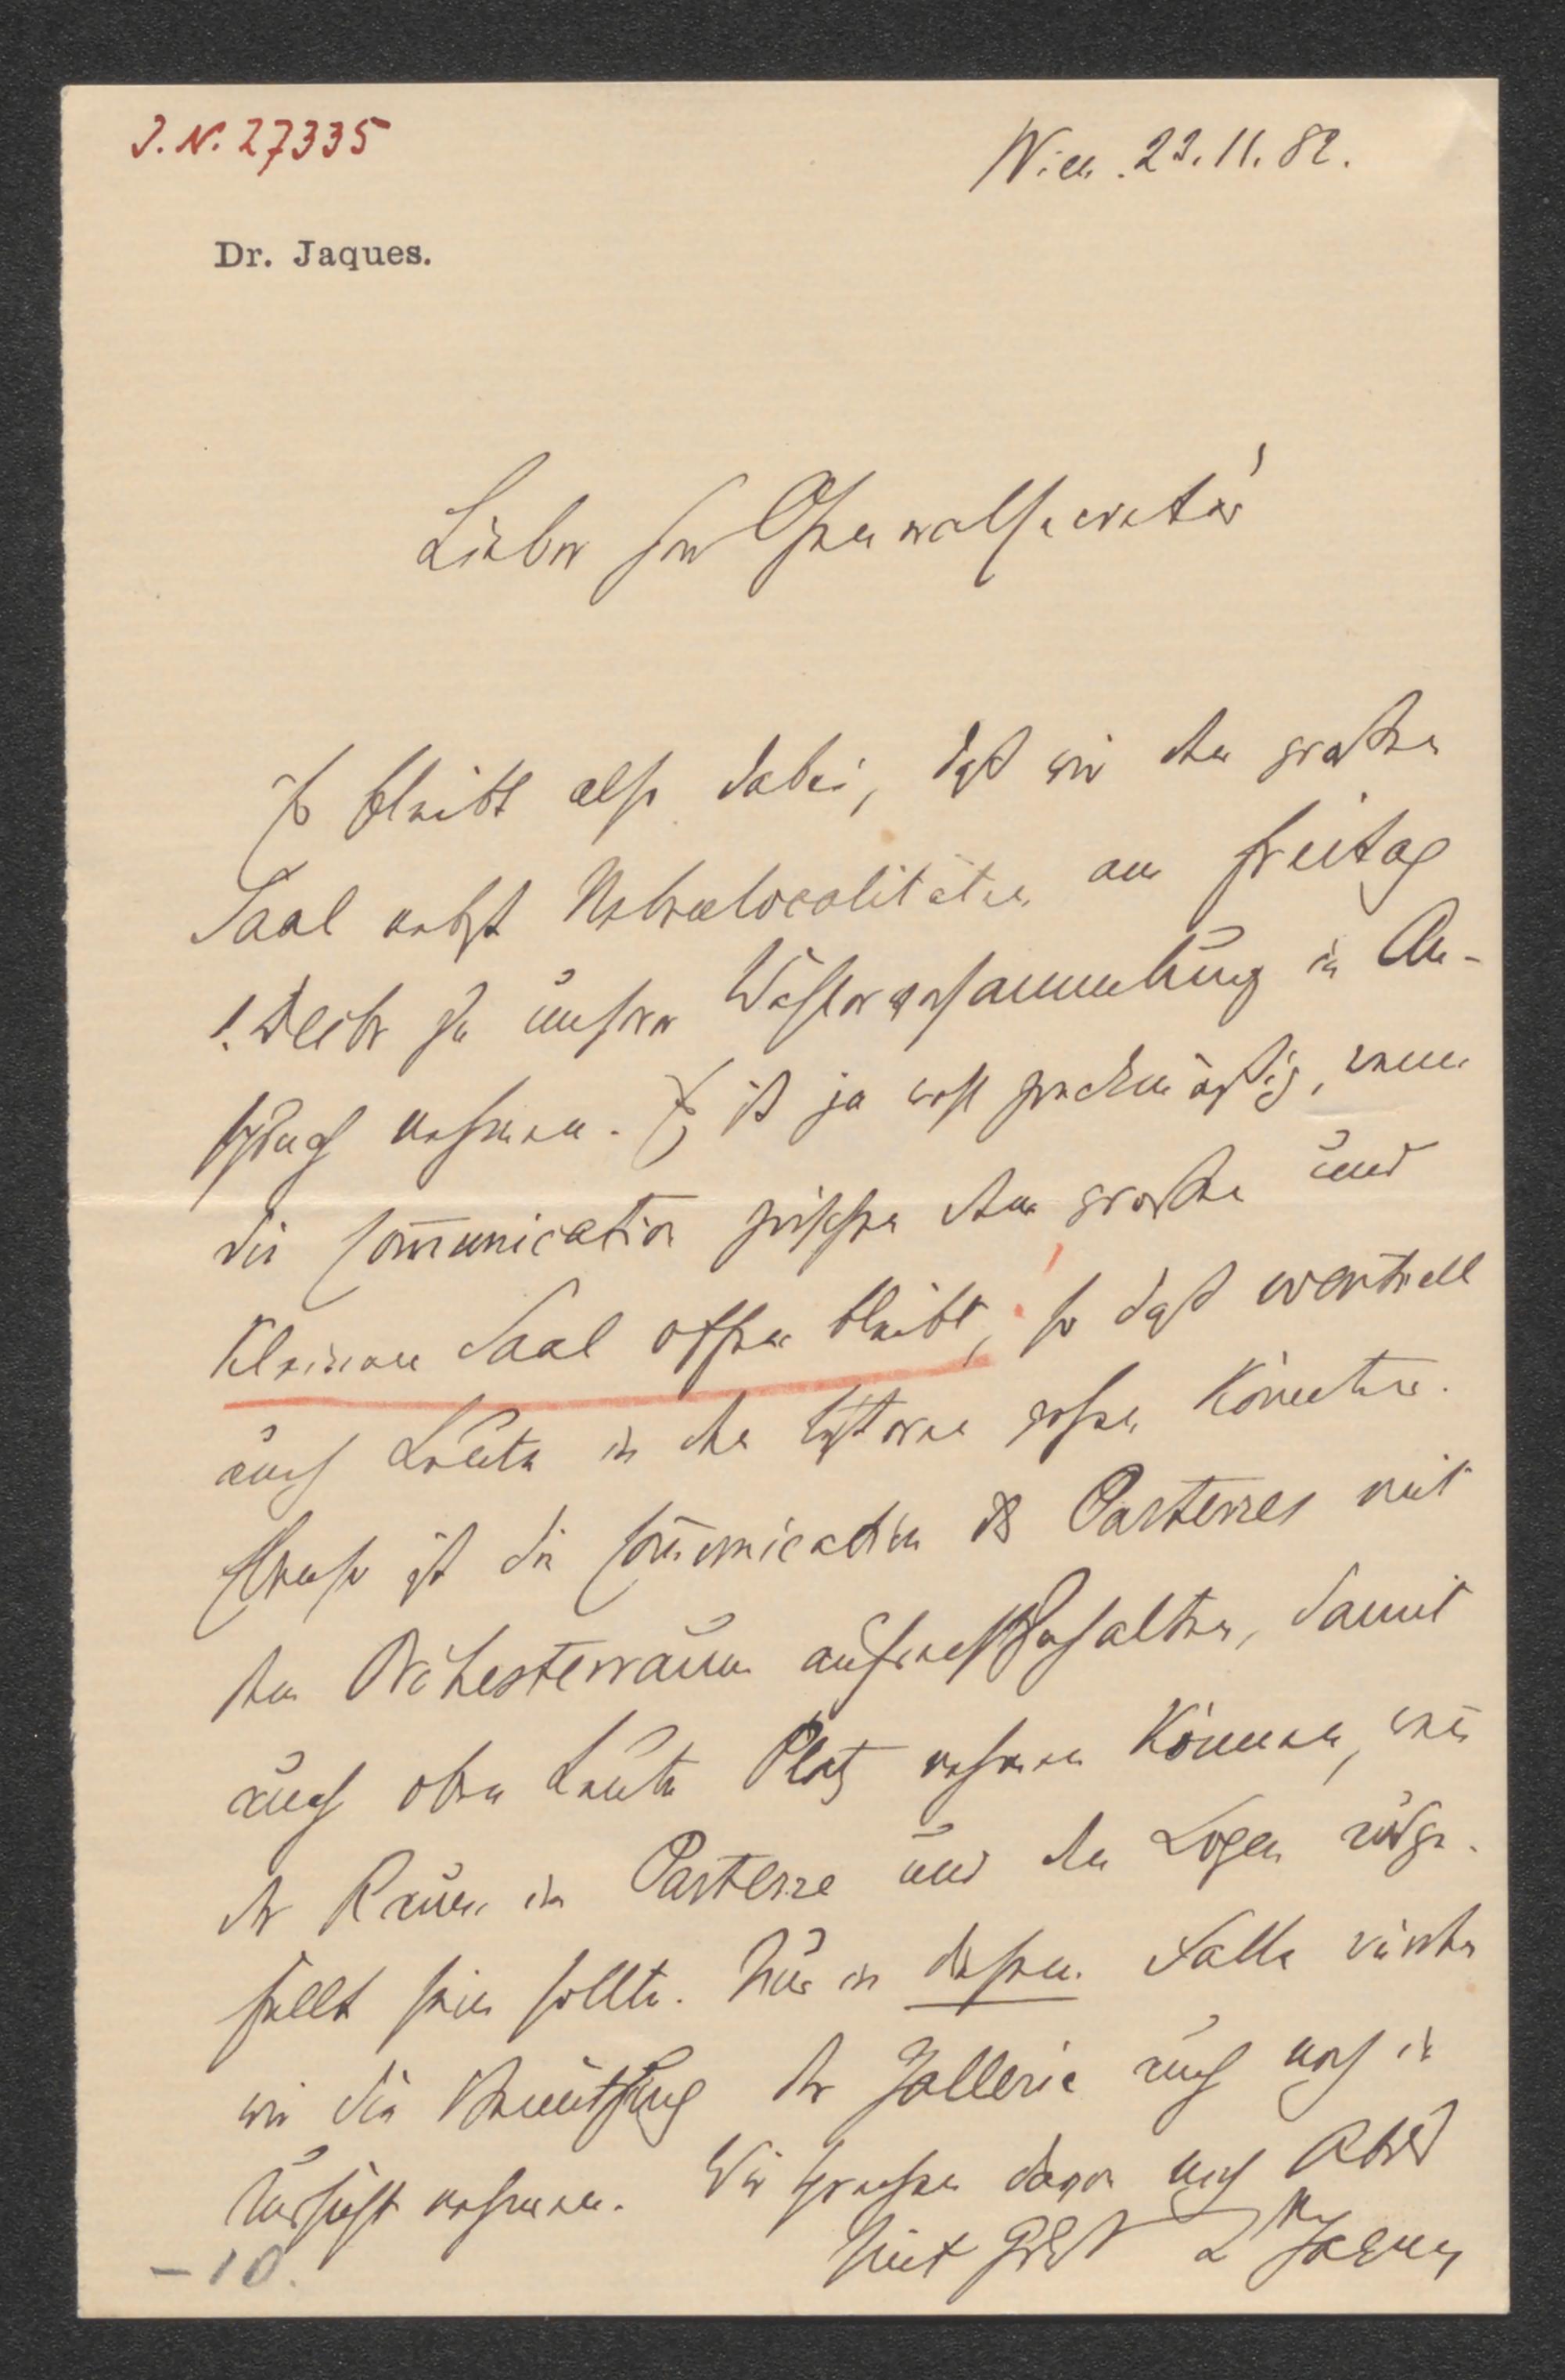 J.N. 27335
Wien. 23.11.82.
Dr. Jaques.
Lieber Herr Generalsecretär
Es bleibt also dabei, daß wir den großen
Saal nebst Nebenlocalitäten am Freitag
1. Decbr zu unserer Wählerversammlung in An-
spruch nehmen. Es ist ja wohl zweckmäßig, wenn
die Communication zwischen dem großen und
kleinen Saal offen bleibt, so daß eventuell
auch Leute in den letzteren gehen könnten.
Ebenso ist die Communication des Parterres mit
dem Orchesterraum aufrechtzuhalten, damit
auch oben Leute Platz nehmen können, wenn
der Raum im Parterre und den Logen ausge-
füllt sein sollte. Nur in diesem Falle würden
wir die Benützung der Gallerie auch noch in
Aussicht nehmen. Wir sprechen davon noch Abends
Mit Gruß Dr Jaques
-10.